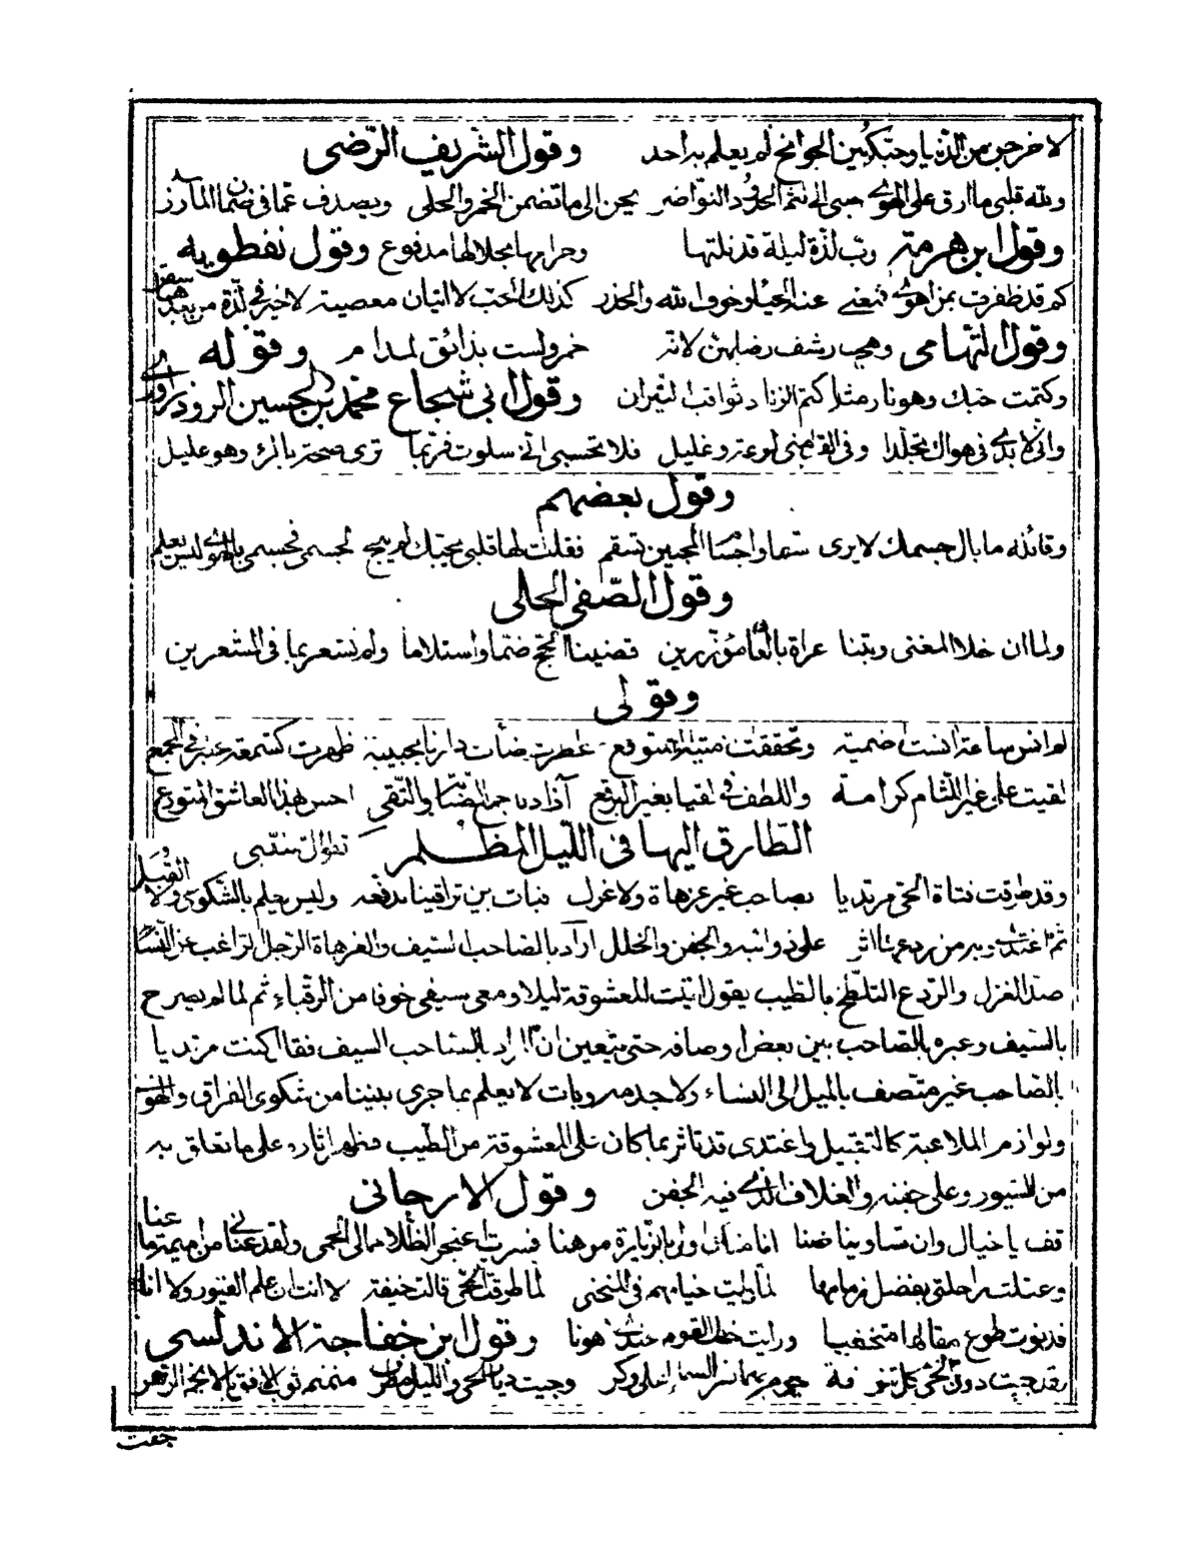 لاخرجن من الدنيا وحبكم بين الجوانح لم يعلم به احد وقول الشريف الرضى
ولله قلبى ما ارق على الهوى صبى الى لثم الخدود النواضر يحن الى ما تضمن الخمر والحلى ويصدف عما فى ضمان المآزر
وقول ابن هرمة ورب لذة ليلة قد نلتها وحرامها بحلالها مدفوع وقول نفطويه
كم قد ظفرت بمن اهوى فيمنعنى عنه الحياء وخوف الله والحذر كذلك الحب لا اتيان معصية لا خير فى لذة من بعدها سقر
وقول التهامى وهجب رشف رضابهن لانه خمر ولست بذائق لمدام وقوله
وكتمت حبك وهو نار مثلما كتم الزناد ثواقب النيران وقول ابى شجاع محمد بن الحسين الروذراورى
وانى لابدى فى هواك تجلدا وفى القلب منى لوعة وغليل فلا تحسبى انى سلوت فربما ترى صحة بالمرء وهو عليل
وقول بعضهم
وقائلة ما بال جسمك لا يرى سقما واجسام المحبين تسقم فقلت لها قلبى بحبك لم يبح لجسمى فجسمى بالهوى ليس يعلم
وقول الصفى الحلى
ولما ان خلا المغنى وبتنا عراة بالعفاف مؤزرين قضينا الحج ضما واستلاما ولم نشعر بما فى المشعرين
وقولى
لم انس ساعة انست اضمية وتحققت منية المتوقع خطرت بضات دارنا بحبيبة ظهرت كشمعة عنبر فى المجمع
لقيت على غير اللثام كرامة واللطف فى لقيا بغير البرقع آذا دبا جم الصبا والتقى احسن بهذا العاشق المتورع
الطارق اليها فى الليل المظلم تقول متنبى
وقد طرقت فتاة الحى مرتديا بصاحب غير عزهاة ولا غزل فبات بين تراقينا ندفعه وليس يعلم بالشكوى ولا القبل
ثم اغتدى وبه من ردعها اثر على ذوائبه والجفن والخلل اراد بالصاحب السيف والعزهاة الرجل الراغب عن النساء
ضد الغزل والردع التلطخ بالطيب يقول اتيت للمعشوقة ليلا ومعى سيفى خوفا من الرقباء ثم لما لم يصرح
بالسيف وعبره بالصاحب بين بعض اوصافه حتى يتعين انه اراد بالصاحب السيف فقال كنت مرتديا
بالصاحب غير متصف بالميل الى النساء ولا جده وبات لا يعلم بما جرى بيننا من شكوى الفراق والهوى
ولوازم الملاعبة كالتقبيل واغتدى قد تاثر بما كان على المعشوقة من الطيب فظهر اثاره على ما تعلق به
من السيور وعلى جفنه والغلاف الذى فيه الجفن وقول الارجانى
قف يا خيال وان تساوينا ضنا انا منك اولى بالزيارة موهنا فسريت اعتجر الظلام الى الحمى ولقد عنانى من اميمة ما عنا
وعقلت راحلتى بفضل زمامها لما رايت خيامهم فى المنحنى لما طرقت الحى قالت خيفة لا انت ان علم الغيور ولا انا
فدنوت طوع مقالها متخفيا ورايت خطب القوم عندى هونا وقول ابن خفاجة الاندلسى
لقد جبت دون الحى كل تنوفة يحوم بها نسر السماء على وكر وجبت ديار الحى والليل مطرق منمنم ثوب الافق بالانجم الزهر
جعت